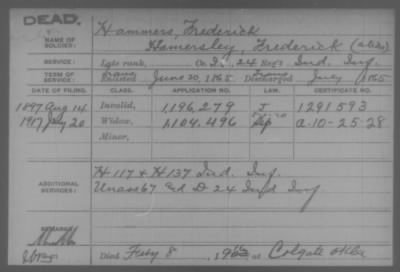 DEAD.
NAME OF SOLDIER:
Hammers, Frederick
Hamersley, Frederick (alias)
SERVICE:
Late rank, Co. D, 24 Reg't Ind. Inf.
TERM OF SERVICE:
Enlisted June 20, 1865. Discharged July 1865
DATE OF FILING. CLASS. APPLICATION NO. LAW. CERTIFICATE NO.
1897 Aug 14 Invalid, 1,196,279 J 1291593
1917 July 20 Widow, 1,104,496 a-10-25-28
Minor,
ADDITIONAL SERVICES:
H 117 & H 137 Ind. Inf.
Unass 67 and D 24 Ind Inf
Died Feby 8, 19 at Colgate Okla